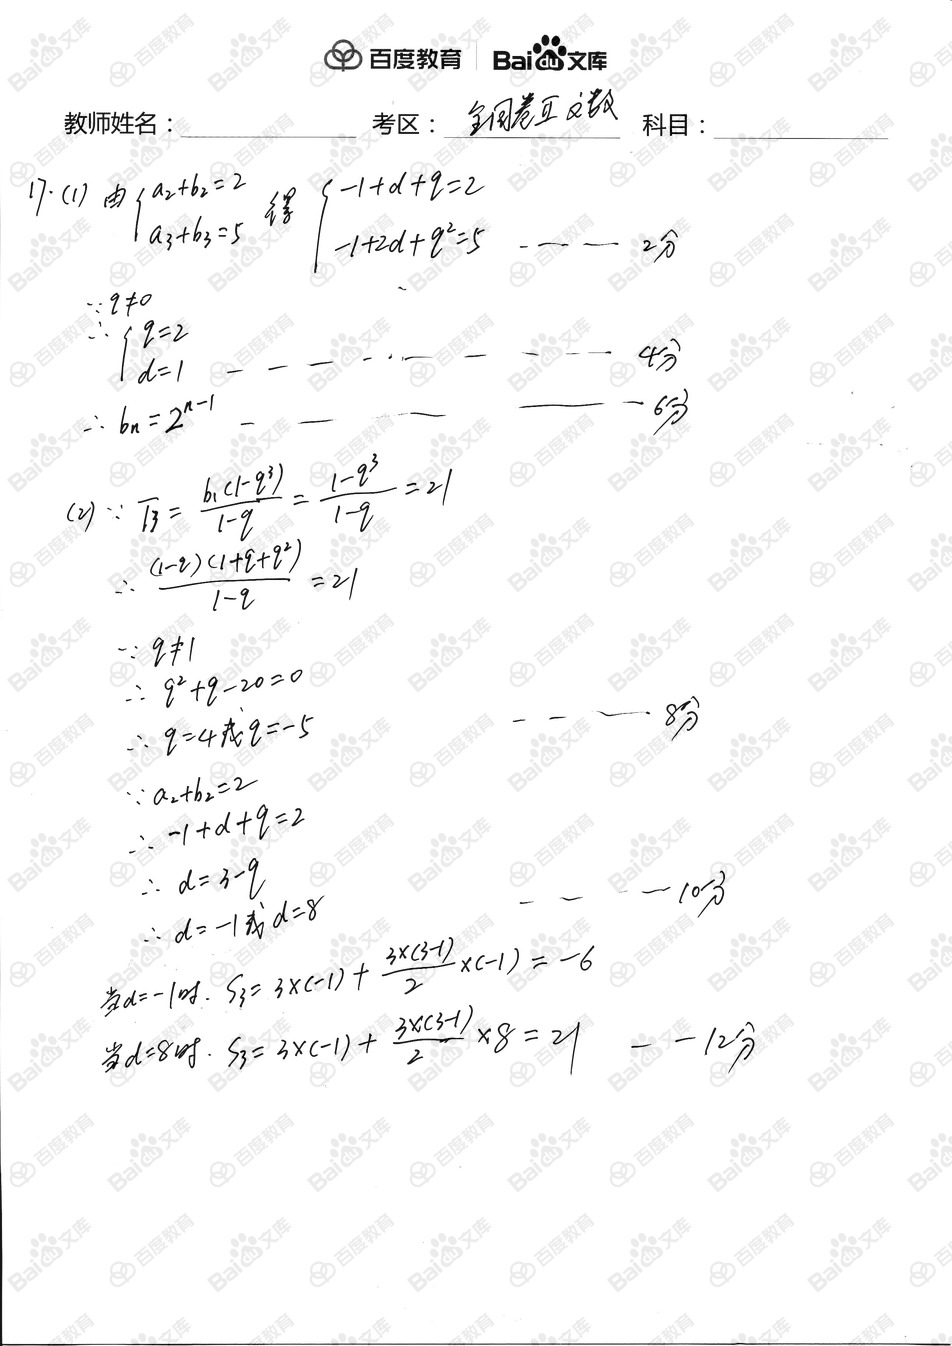 百度教育 Bai文库
教师姓名： 考区：全国卷Ⅱ文数 科目：
17.(1) 由 { a₂+b₂=2 得 { -1+d+q=2
a₃+b₃=5 -1+2d+q²=5 ---- 2分
∵ q≠0
∴ { q=2
d=1 ---- 4分
∴ bₙ=2ⁿ⁻¹ ---- 6分
(2) ∵ T₃ = b₁(1-q³)/(1-q) = (1-q³)/(1-q) = 21
∴ (1-q)(1+q+q²)/(1-q) = 21
∵ q≠1
∴ q²+q-20=0
∴ q=4或q=-5 ---- 8分
∵ a₂+b₂=2
∴ -1+d+q=2
∴ d=3-q
∴ d=-1或d=8 ---- 10分
当d=-1时. S₃=3×(-1)+3×(3-1)/2×(-1)=-6
当d=8时. S₃=3×(-1)+3×(3-1)/2×8=21 --12分